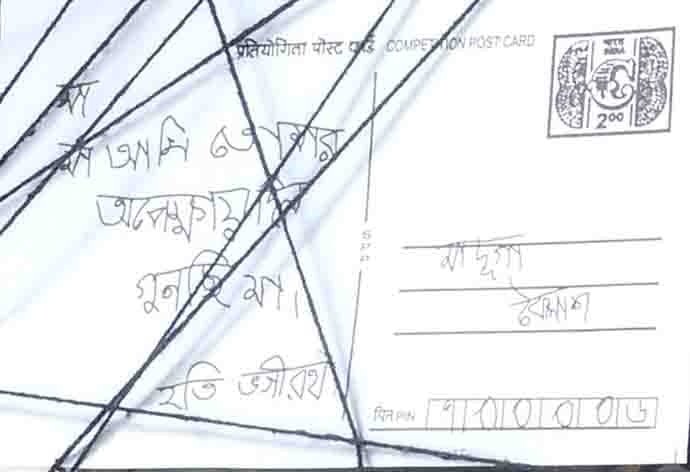 प्रतियोगिता पोस्ट कार्ड COMPETITION POST CARD
भारत
INDIA
2.00
মা
মা আমি তোমার
অপেক্ষায় দিন
গুনছি মা।
ইতি ভগীরথ
SPP
মা দুগ্গা
কৈলাশ
पिन PIN